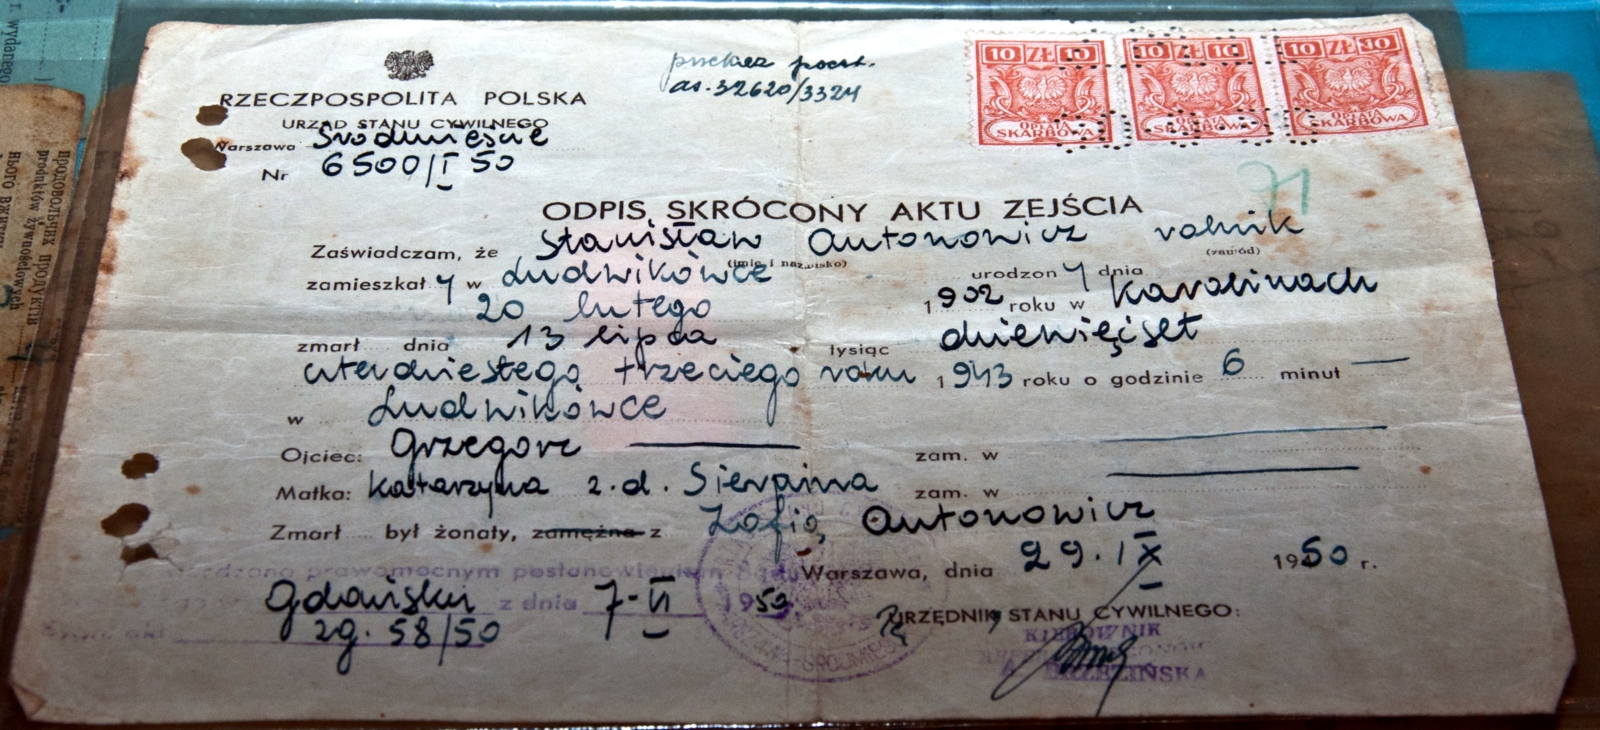 RZECZPOSPOLITA POLSKA
URZĄD STANU CYWILNEGO
Warszawa Śródmieście
Nr 6500/I 50
przekaz poczt.
as. 32620/3324
10 ZŁ 10
OPŁATA
SKARBOWA
10 ZŁ 10
OPŁATA
SKARBOWA
10 ZŁ 10
OPŁATA
SKARBOWA
71
ODPIS SKRÓCONY AKTU ZEJŚCIA
Zaświadczam, że Stanisław Antonowicz rolnik
(imię i nazwisko) (zawód)
zamieszkały w Ludwikówce urodzony dnia
20 lutego 1902 roku w Karolinach
zmarł dnia 13 lipca tysiąc dziewięćset
czterdziestego trzeciego roku 1943 roku o godzinie 6 minut —
w Ludwikówce
Ojciec: Grzegorz — zam. w —
Matka: Katarzyna z.d. Sierpina zam. w —
Zmarł był żonaty, zamężna z Zofią Antonowicz
Warszawa, dnia 29.IX 1950 r.
prawomocnym postanowieniem
Gdańsku z dnia 7-VI 1950
zg. 58/50
URZĘDNIK STANU CYWILNEGO:
KIEROWNIK
A. BRZEZIŃSKA